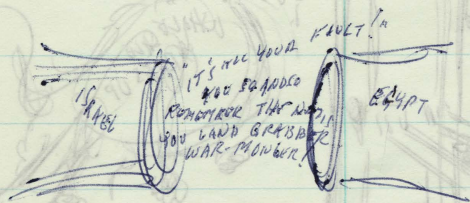 ISRAEL
"IT'S ALL YOUR FAULT!"
REMEMBER THAT
YOU LAND GRABBER
WAR-MONGER!
EGYPT